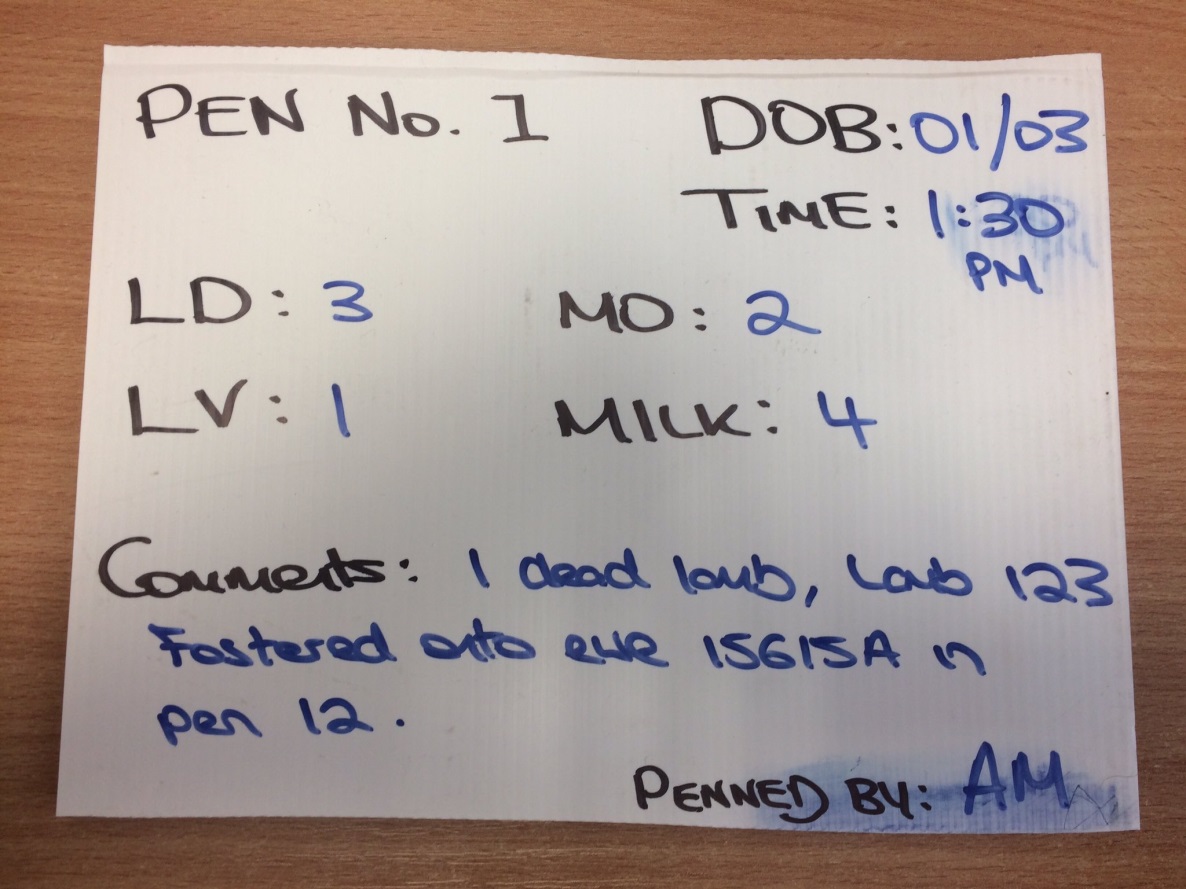 PEN No. 1
DOB: 01/03
TIME: 1:30
PM
LD: 3
MO: 2
LV: 1
MILK: 4
Comments: 1 dead lamb, Lamb 123
Fostered onto ewe 15615A in
pen 12.
PENNED BY: AM